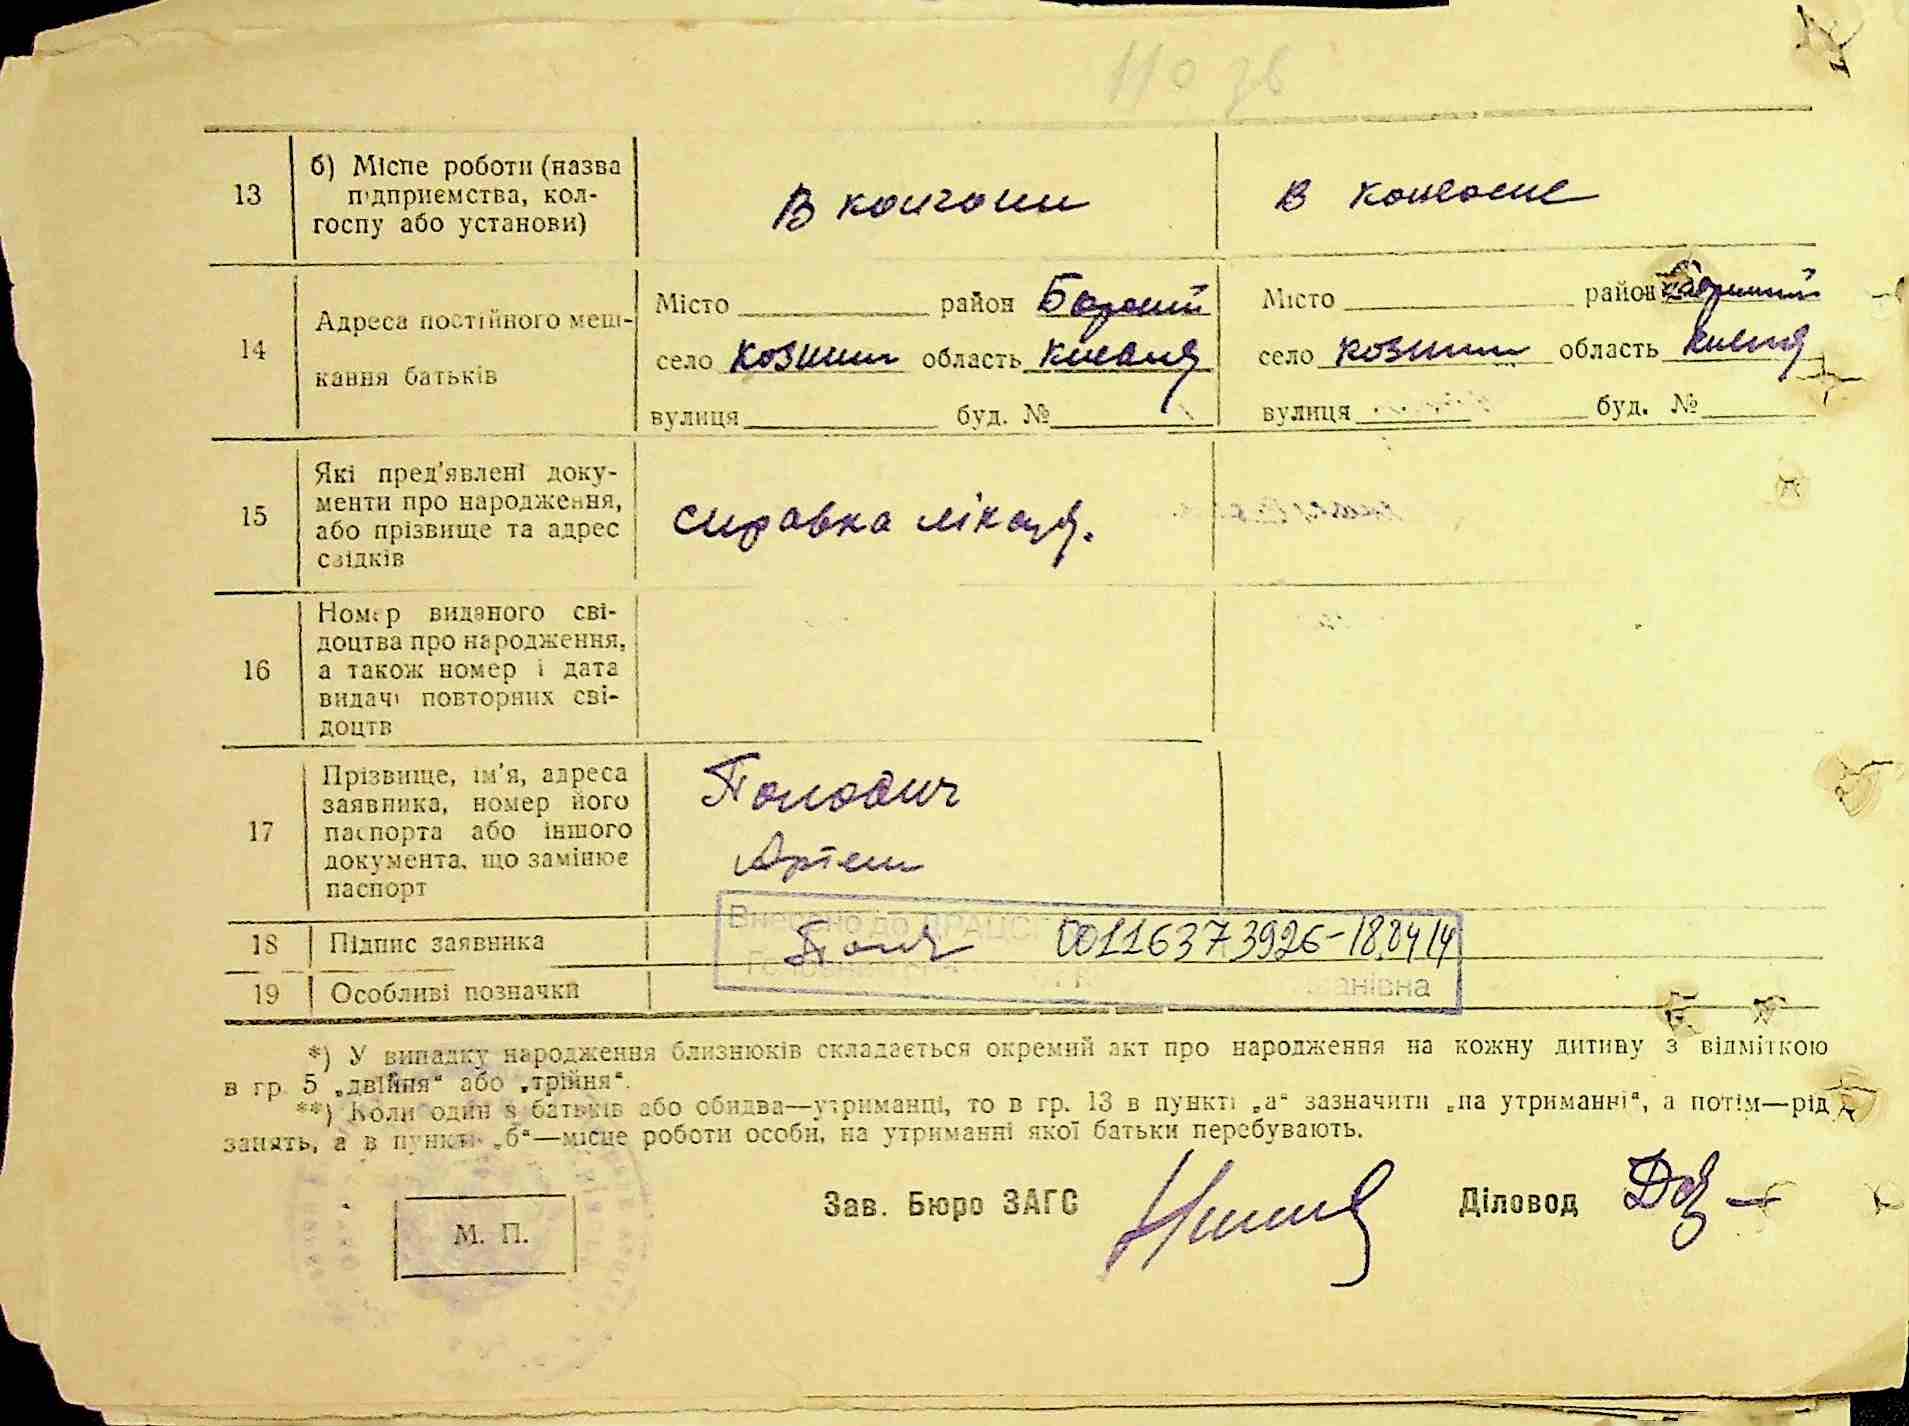 110 зв
13 б) Місце роботи (назва підприємства, колгоспу або установи) В колгоспи В колгоспе
14 Адреса постійного меш-
кання батьків
Місто район Місто район
село козин область село козин область
вулиця буд. № вулиця буд. №
15 Які пред'явлені доку-
менти про народження,
або прізвище та адрес
свідків
справка лікаря.
16 Номер виданого сві-
доцтва про народження,
а також номер і дата
видачі повторних сві-
доцтв
17 Прізвище, ім'я, адреса
заявника, номер його
паспорта або іншого
документа, що замінює
паспорт
Артем
Внесено до ДРАЦС
18 Підпис заявника 00116373926-18.04 14
19 Особливі позначки
*) У випадку народження близнюків складається окремий акт про народження на кожну дитину з відміткою
в гр. 5 „двійня“ або „трійня“.
**) Коли один з батьків або обидва—утриманці, то в гр. 13 в пункті „а“ зазначити „на утриманні“, а потім—рід
занять, а в пункті „б“—місце роботи особи, на утриманні якої батьки перебувають.
Зав. Бюро ЗАГС Діловод
М. П.